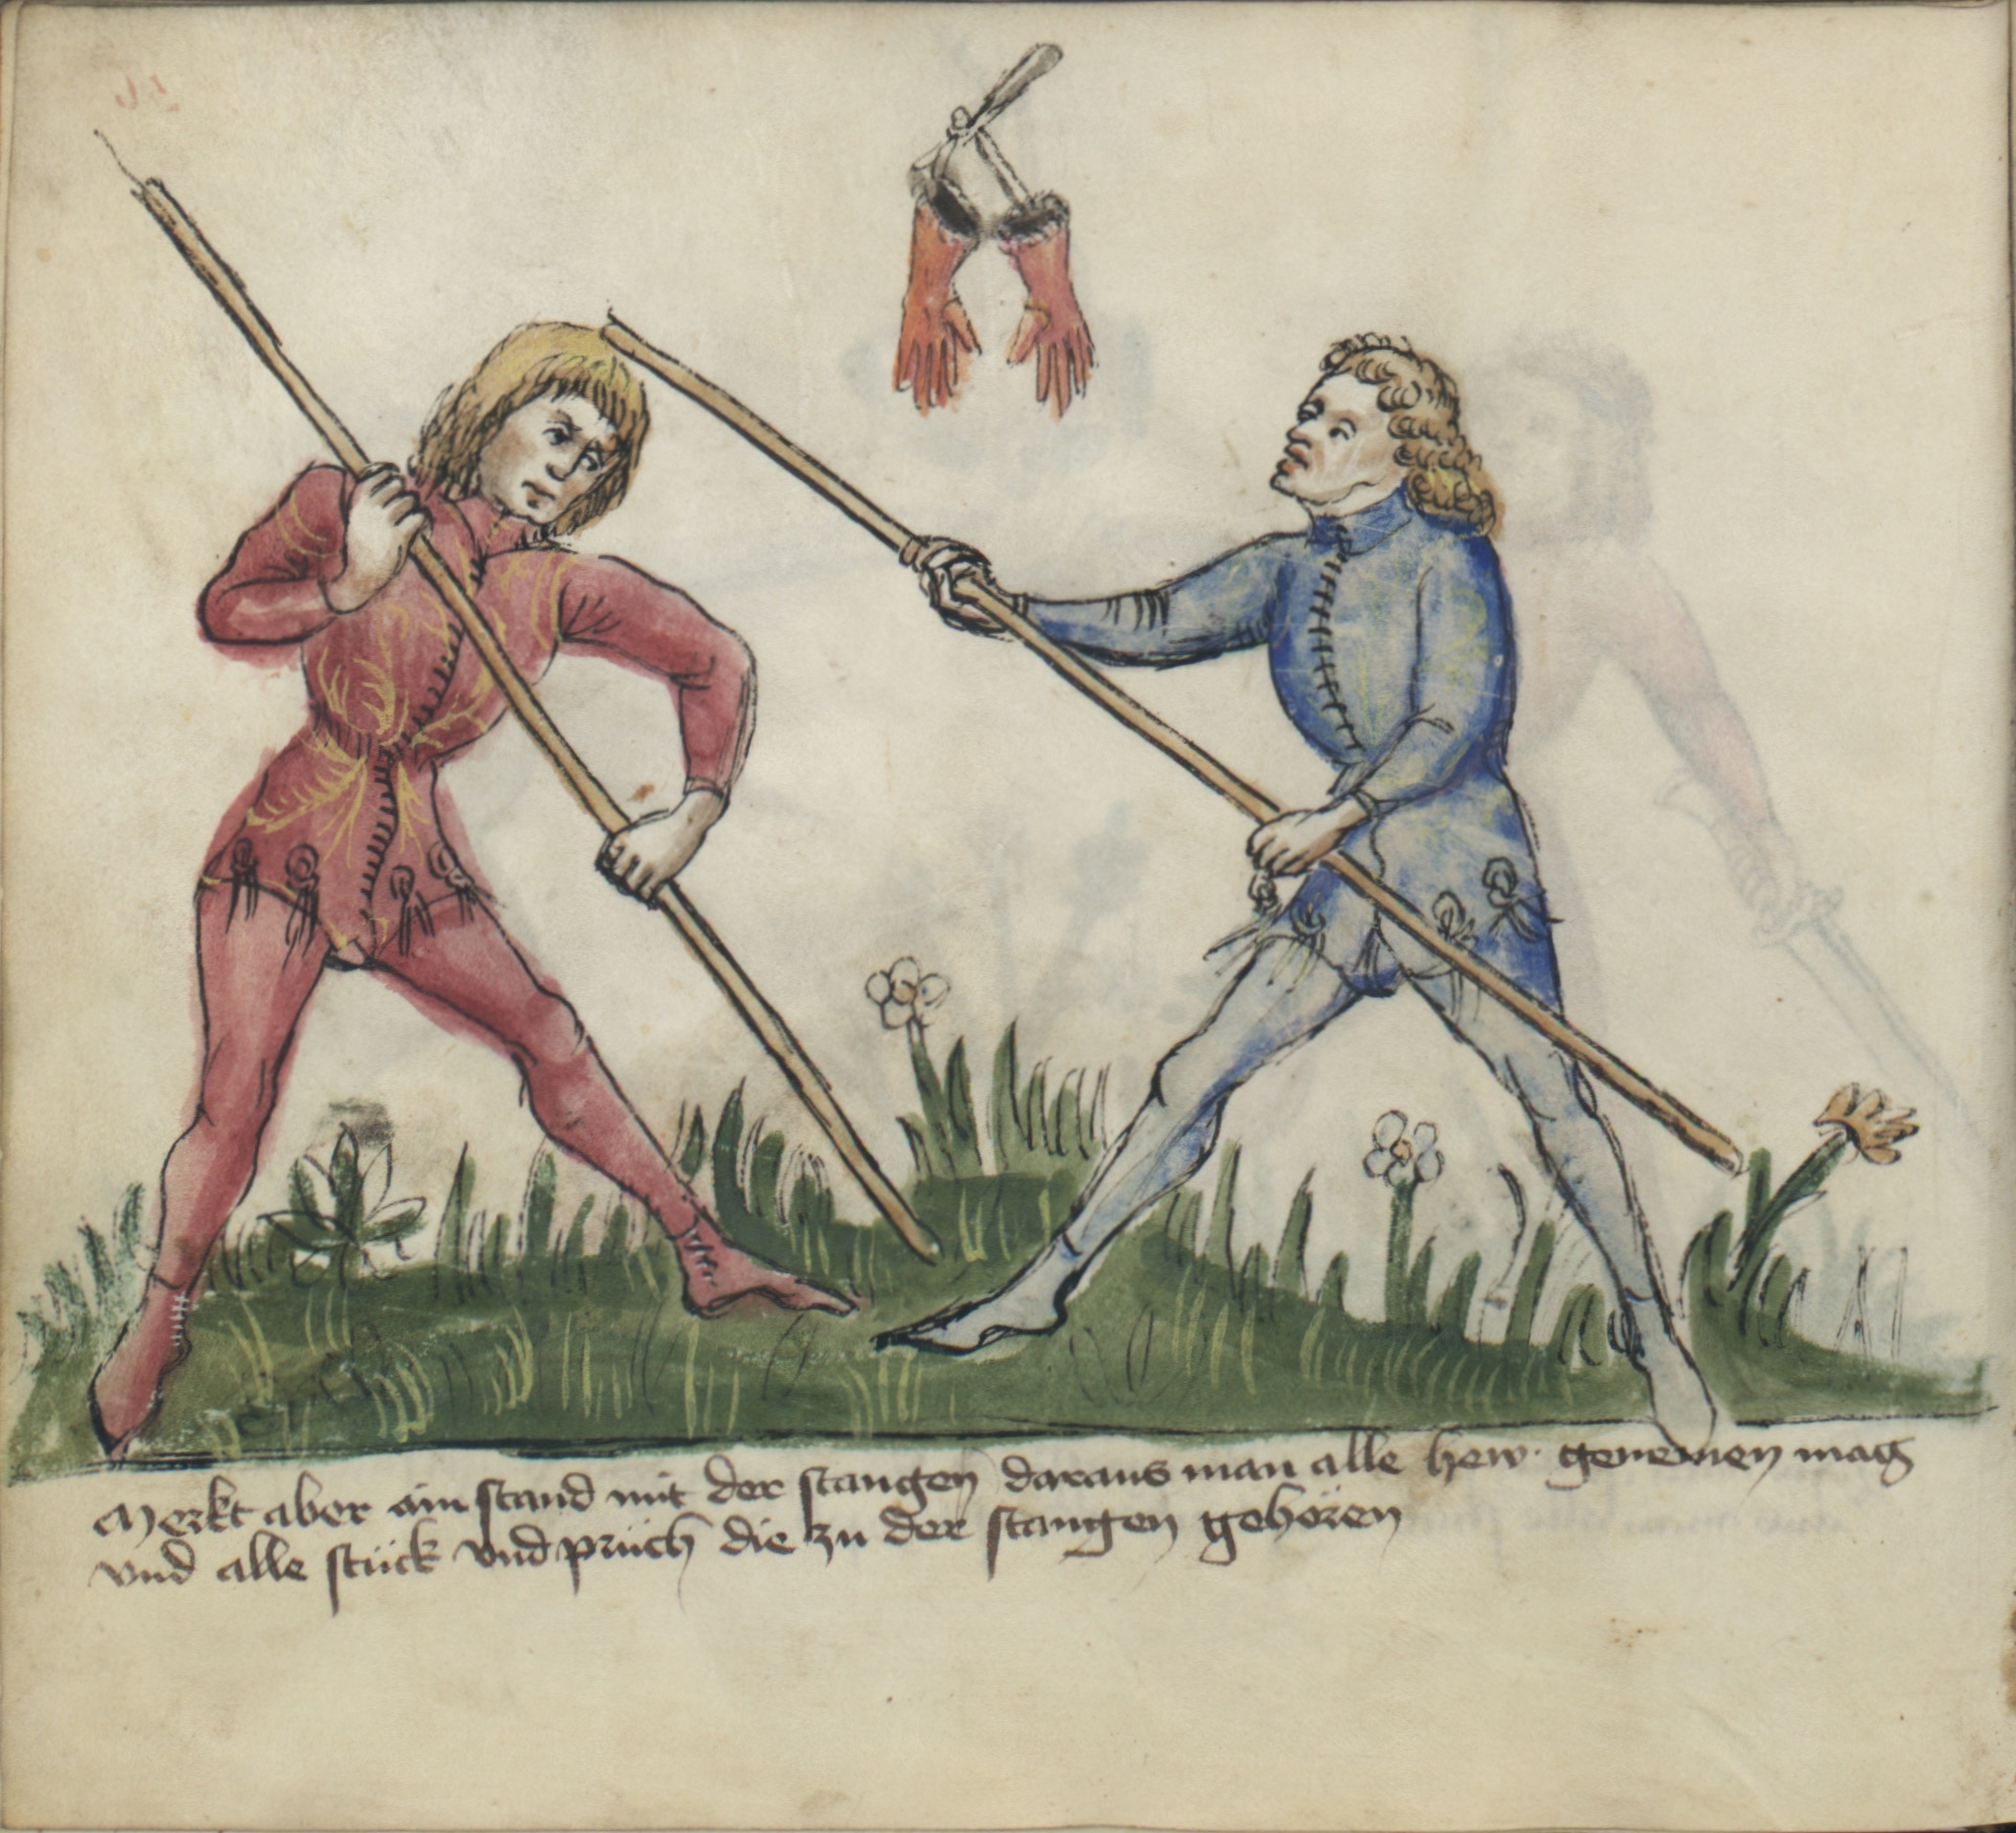 Merkt aber ain stand mit der stangen daraus man alle hew · genemen mag
vnd alle stück vnd prüch die zu der stangen gehören